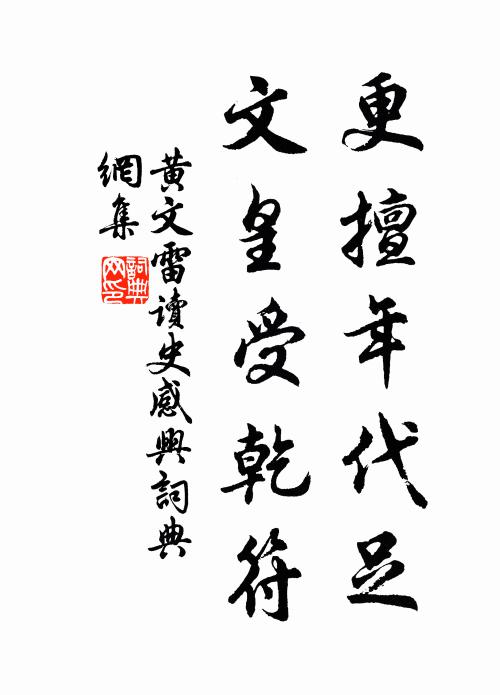 更擅年代足
文皇受乾符
黃文雷讀史感興詞典
網集
詞典
網印